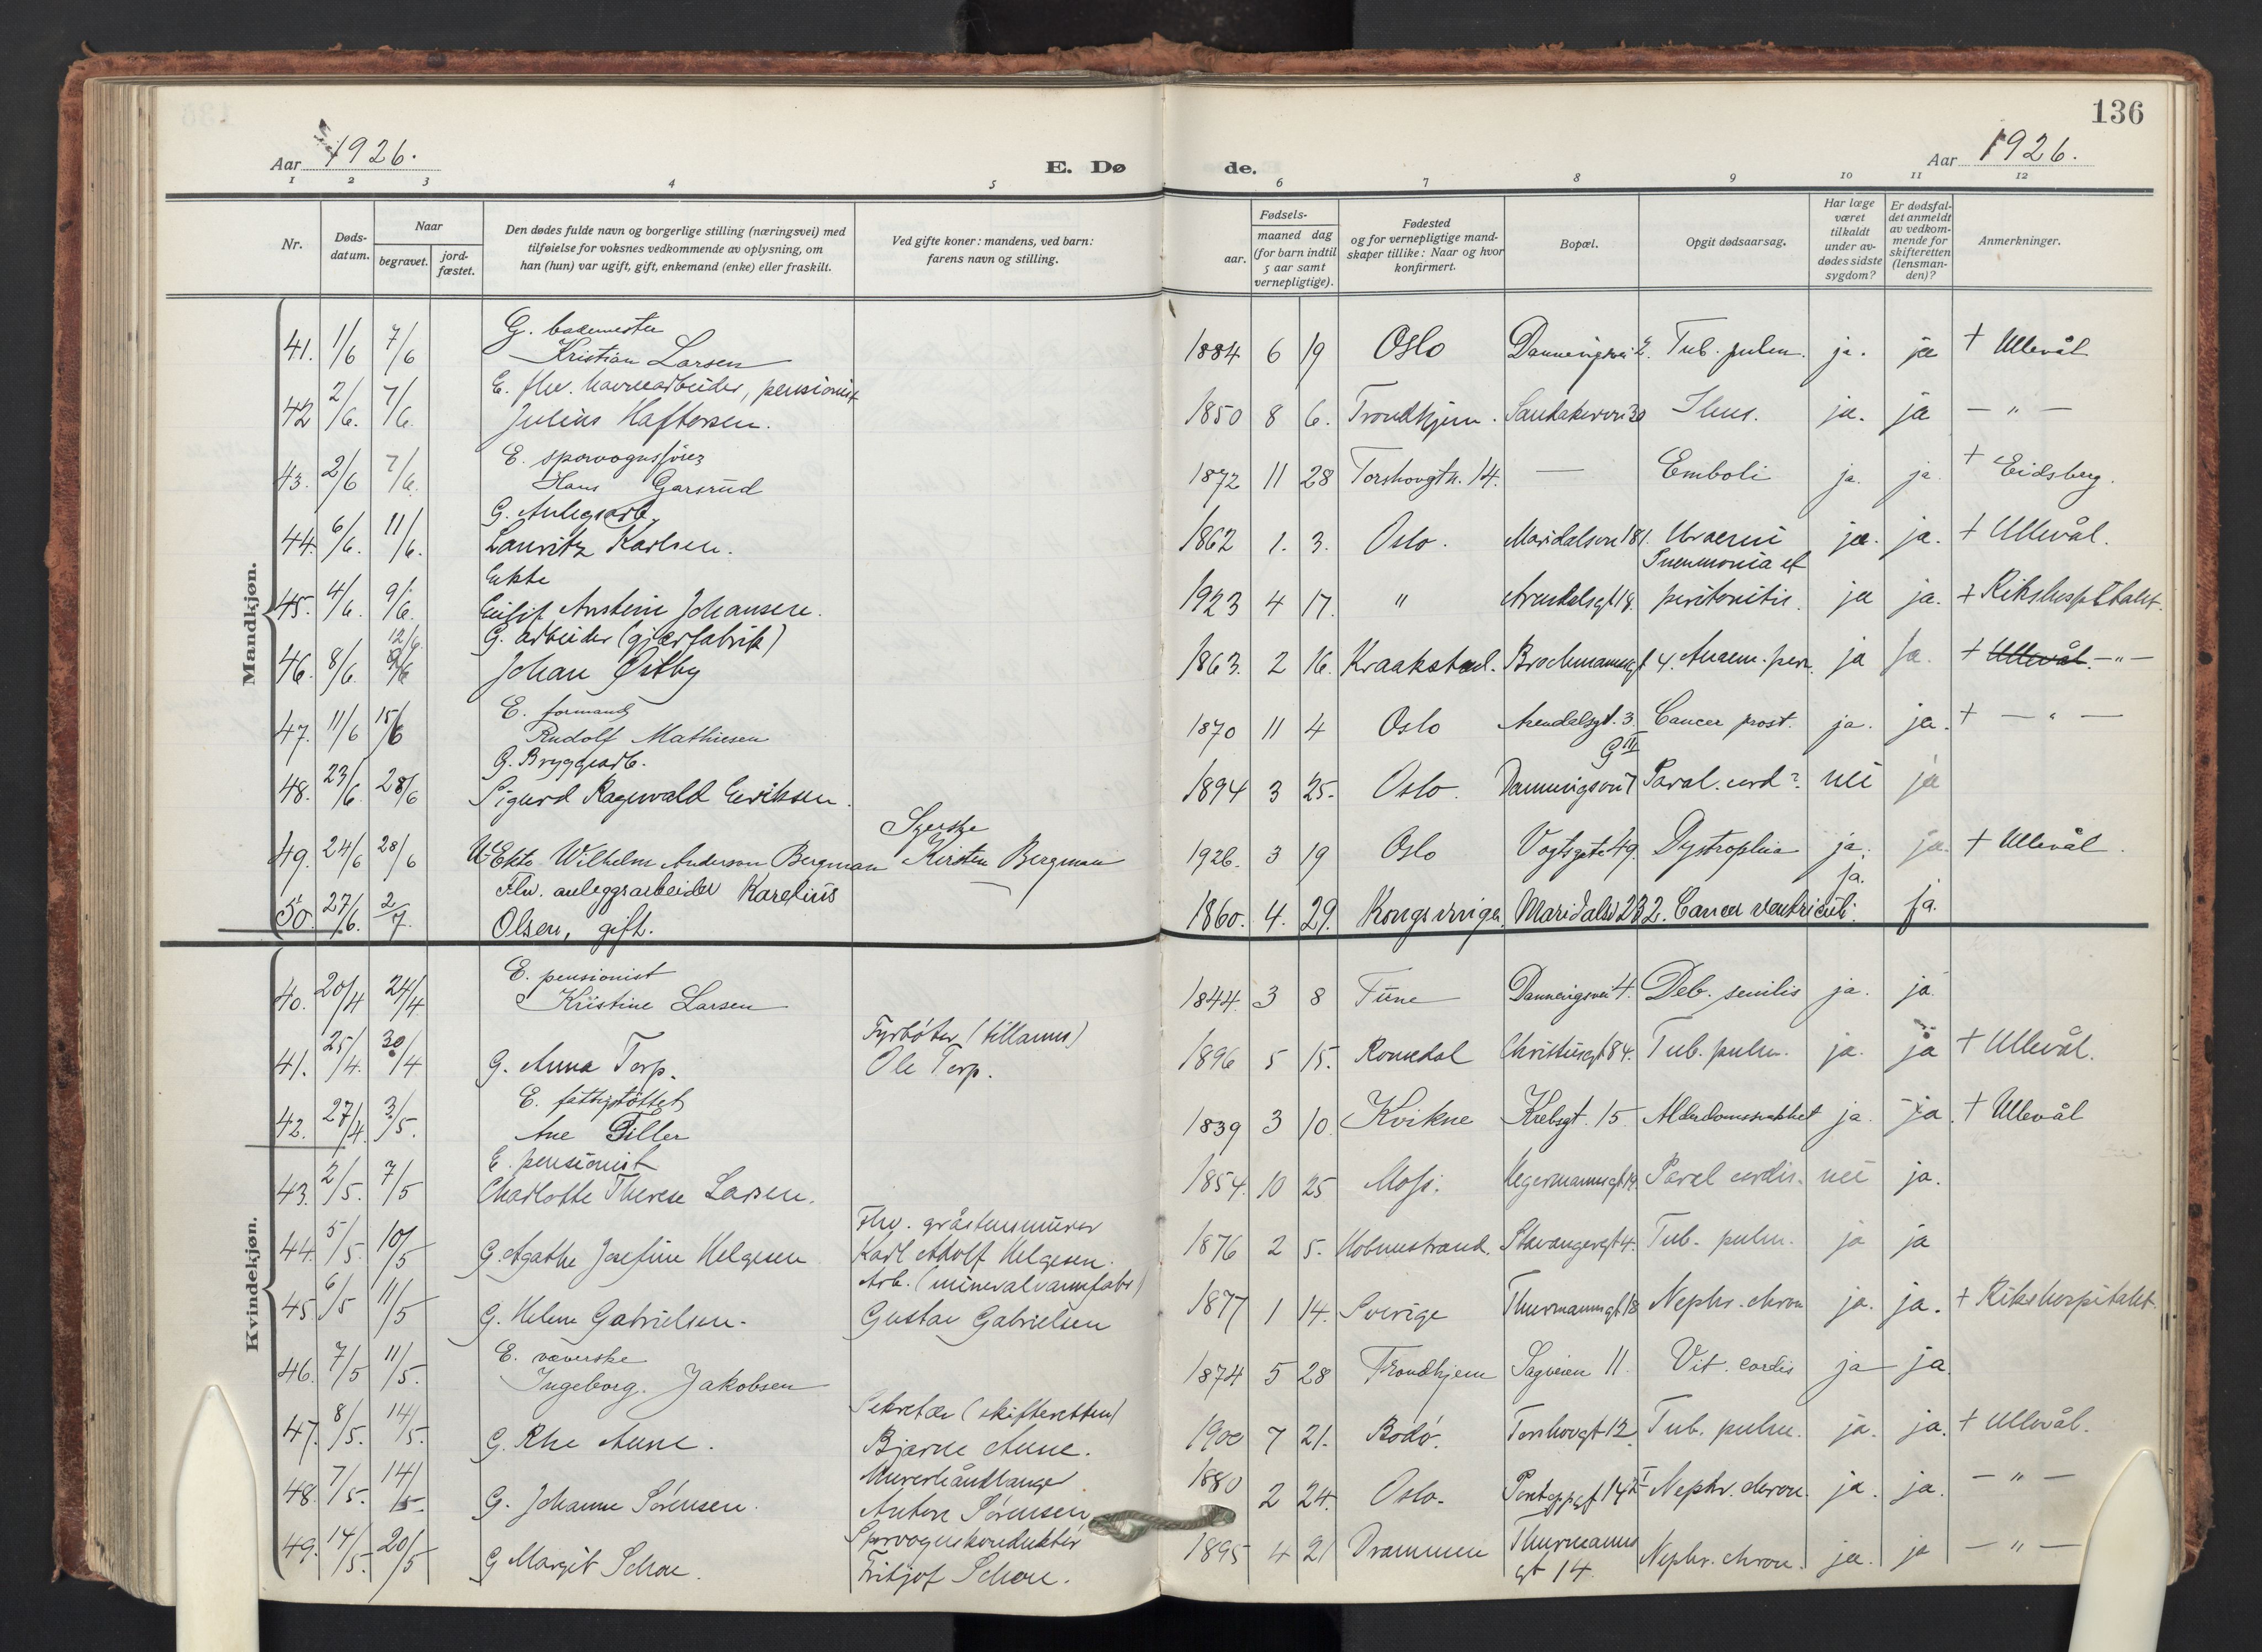 136
Aar 1926.
E. Dø
de.
Aar 1926.
1 2 3 4 5 6 7 8 9 10 11 12
Nr.
Døds-
datum.
Naar
begravet.
jord-
fæstet.
Den dødes fulde navn og borgerlige stilling (næringsvei) med
tilføielse for voksnes vedkommende av oplysning, om
han (hun) var ugift, gift, enkemand (enke) eller fraskilt.
Ved gifte koner: mandens, ved barn:
farens navn og stilling.
Fødsels-
aar.
maaned dag
(for barn indtil
5 aar samt
vernepligtige).
Fødested
og for vernepligtige mand-
skaper tillike: Naar og hvor
konfirmert.
Bopæl.
Opgit dødsaarsag.
Har læge
været
tilkaldt
under av-
dødes sidste
sygdom?
Er dødsfal-
det anmeldt
av vedkom-
mende for
skifteretten
(lensman-
den)?
Anmerkninger.
Mandkjøn.
G. bademester
41. 1/6 7/6 Kristian Larsen 1884 6 19 Oslo Tub. pulm. ja. ja + Ullevål
E. fhv. havnearbeider, pensionist
42 2/6. 7/6. Julius Haftorsen. 1850 8 6. Trondhjem. ja. ja — " —
E. sporvognsfører
43. 2/6 7/6. Hans Garsrud 1872 11 28 Torshovgtn. 14. — Emboli ja. ja. + Eidsberg.
G. Anlegsarb.
44. 6/6. 11/6. Lauritz Karlsen. 1862 1. 3. Oslo. Maridalsvn 181. Uraemi ja. ja. + Ullevål.
Ekte Pneumonia et
45. 4/6. 9/6. Johansen. 1923 4 17. " Arendalsgt 18. peritonitis. ja ja. + Rikshospitalet.
G. arbeider (gjærfabrik)
12/6.
46. 8/6. 9/6 Johan Østby 1863. 2 16. Kraakstad. Brochmannsgt 4. Anaem. pern. ja ja. + Ullevål. — " —
E. formand
47. 11/6 15/6 Rudolf Mathiesen 1870 11 4 Oslo Arendalsgt. 3 Cancer prost. ja. ja. + — " —
G. Bryggearb. G III
48. 23/6. 28/6 Sigurd Ragnvald Eriksen. 1894 3 25. Oslo. Paral. cord? nei ja
Syerske
49. 24/6 28/6 U. Ekte Wilhelm Anderson Bergman Kirsten Bergman 1926. 3 19 Oslo Vogtsgate 49. Dystrophia ja. ja. + Ullevål.
Fhv. anleggsarbeider Karelius ja.
50. 27/6. 2/7. Olsen, gift. 1860. 4. 29. Kongsvinger. Maridalsv 232. Cancer ventriculi. ja.
Kvindekjøn.
E. pensionist
40. 20/4 24/4 Kristine Larsen 1844. 3 8 Tune Deb. senilis ja. ja.
Fyrbøter (tillands)
41. 25/4. 30/4 G. Anna Torp. Ole Torp. 1896 5 15. Romedal Christiesgt 84. Tub. pulm. ja. ja + Ullevål.
E. fattigstøttet
42. 27/4. 3/5. Ane Tiller 1839 3 10. Kvikne Krebsgt. 15 Alderdomssvakhet ja. ja. + Ullevål
E. pensionist
43. 2/5. 7/5 Charlotte Therese Larsen. 1854. 10 25 Moss. Hegermannsgt 14. Paral cordis. nei ja.
Fhv. gråstensmurer
44. 5/5. 10/5 G. Agathe Josefine Helgesen Karl Adolf Helgesen. 1876 2 5. Holmestrand. Stavangergt 4. Tub. pulm. ja ja
Arb. (mineralvannfabr)
45. 6/5 11/5 G. Helene Gabrielsen. Gustav Gabrielsen 1877 1 14. Sverige Thurmannsgt 18 Nephr. chron ja. ja. + Rikshospitalet.
E. væverske
46. 7/5 11/5. Ingeborg. Jakobsen 1874 5 28 Trondhjem Sagveien 11. Vit. cordis ja ja.
Sekretær (skifteretten)
47. 8/5. 14/5. G. Aune. Bjarne Aune. 1900 7 21. Bodø. Torshovgt 12. Tub. pulm. ja. ja. + Ullevål.
Murerhåndlanger
48. 7/5. 14/5. G. Johanne Sørensen. Anton Sørensen 1880 2 24. Oslo. Nephr. chron. ja. ja. — " —
Sporvognskonduktør Thurmanns
49. 14/5. 20/5 G Margit Schou. Fritjof Schou. 1895 4 21 Drammen gt 14. Nephr. chron. ja. ja — " —